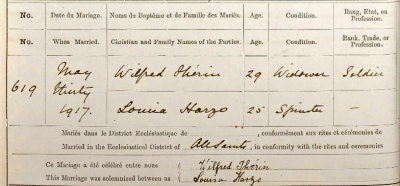 No. Date du Mariage. Noms de Baptême et de Famille des Mariés. Age. Condition. Rang, Etat, ou Profession.
No. When Married. Christian and Family Names of the Parties. Age. Condition. Rank, Trade, or Profession.
619 May Wilfred Thérin 29 Widower Soldier
Thirty
1917. Louisa Harzo 25 Spinster —
Mariés dans le District Ecclésiastique de , conformément aux rites et cérémonies de
Married in the Ecclesiastical District of All Saints, in conformity with the rites and ceremonies
Ce Mariage a été célébré entre nous Wilfred Thérin
This Marriage was solemnized between us Louisa Harzo